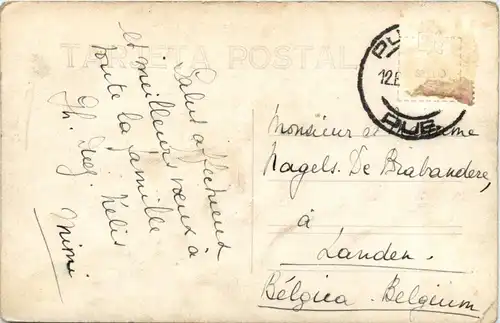 TARJETA POSTAL
Salut affectueux
et meilleurs vœux à
toute la famille
Mimi
12.E
PUE
Monsieur et Madame
Nagels. De Brabandere,
à
Landen.
Bélgica - Belgium